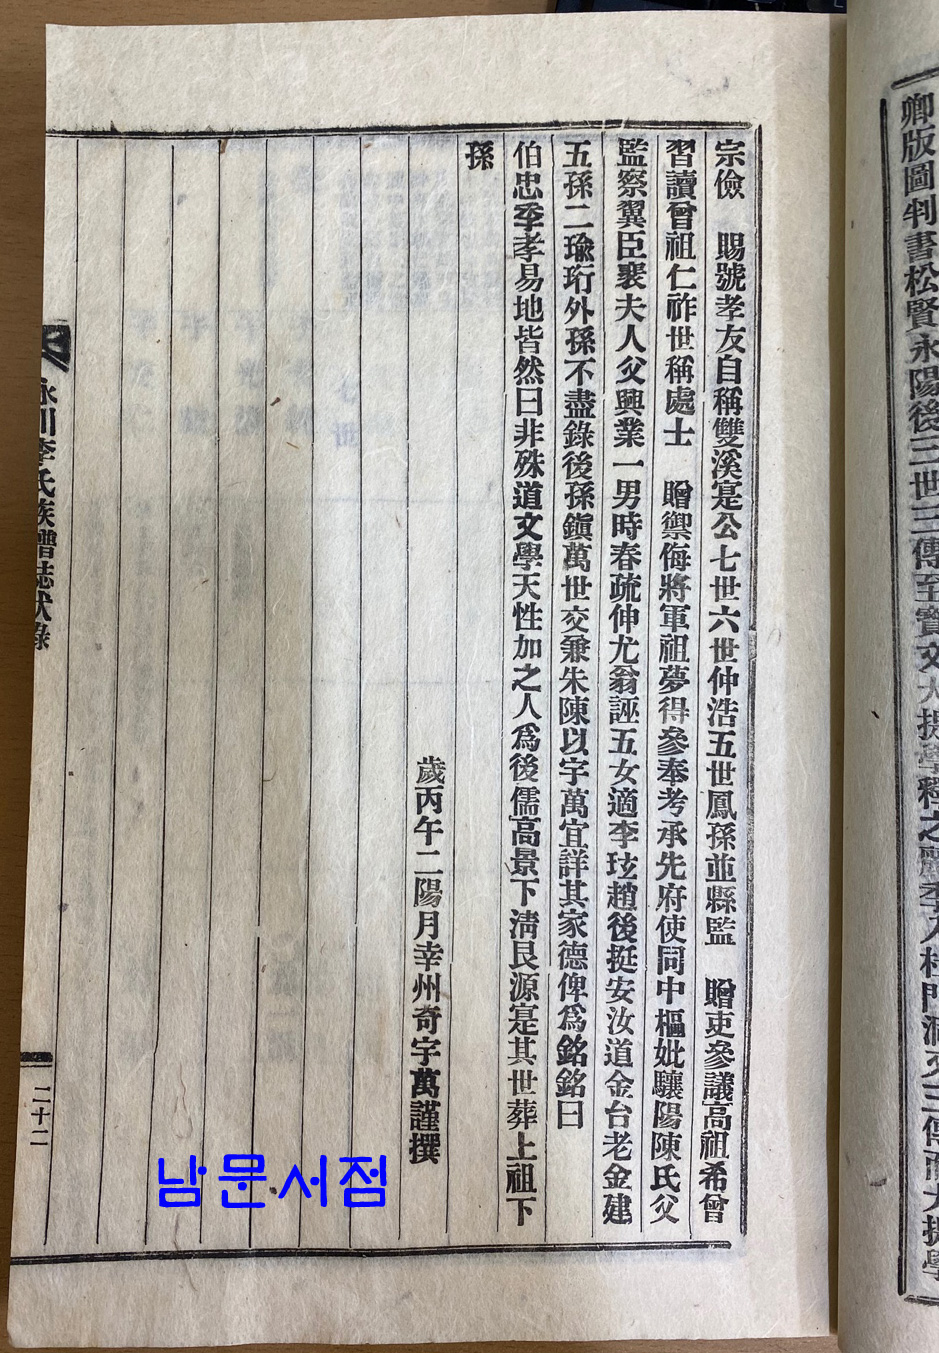 卿版圖判書松賢永陽後三世三傳至實文大提學種之
宗儉　賜號孝友自稱雙溪寔公七世六世仲浩五世鳳孫並縣監　贈吏參議高祖希曾
習讀曾祖仁祚世稱處士　贈禦侮將軍祖夢得參奉考承先府使同中樞妣驪陽陳氏父
監察翼臣裵夫人父興業一男時春疏仲尤翁誣五女適李玹趙後挺安汝道金台老金建
五孫二瑜珩外孫不盡錄後孫鎭萬世交兼朱陳以宇萬宜詳其家德俾爲銘銘曰
伯忠季孝易地皆然曰非殊道文學天性加之人爲後儒高景下淸艮源寔其世葬上祖下
孫
歲丙午二陽月幸州奇宇萬謹撰
永川李氏族譜誌狀錄
二十二
남문서점